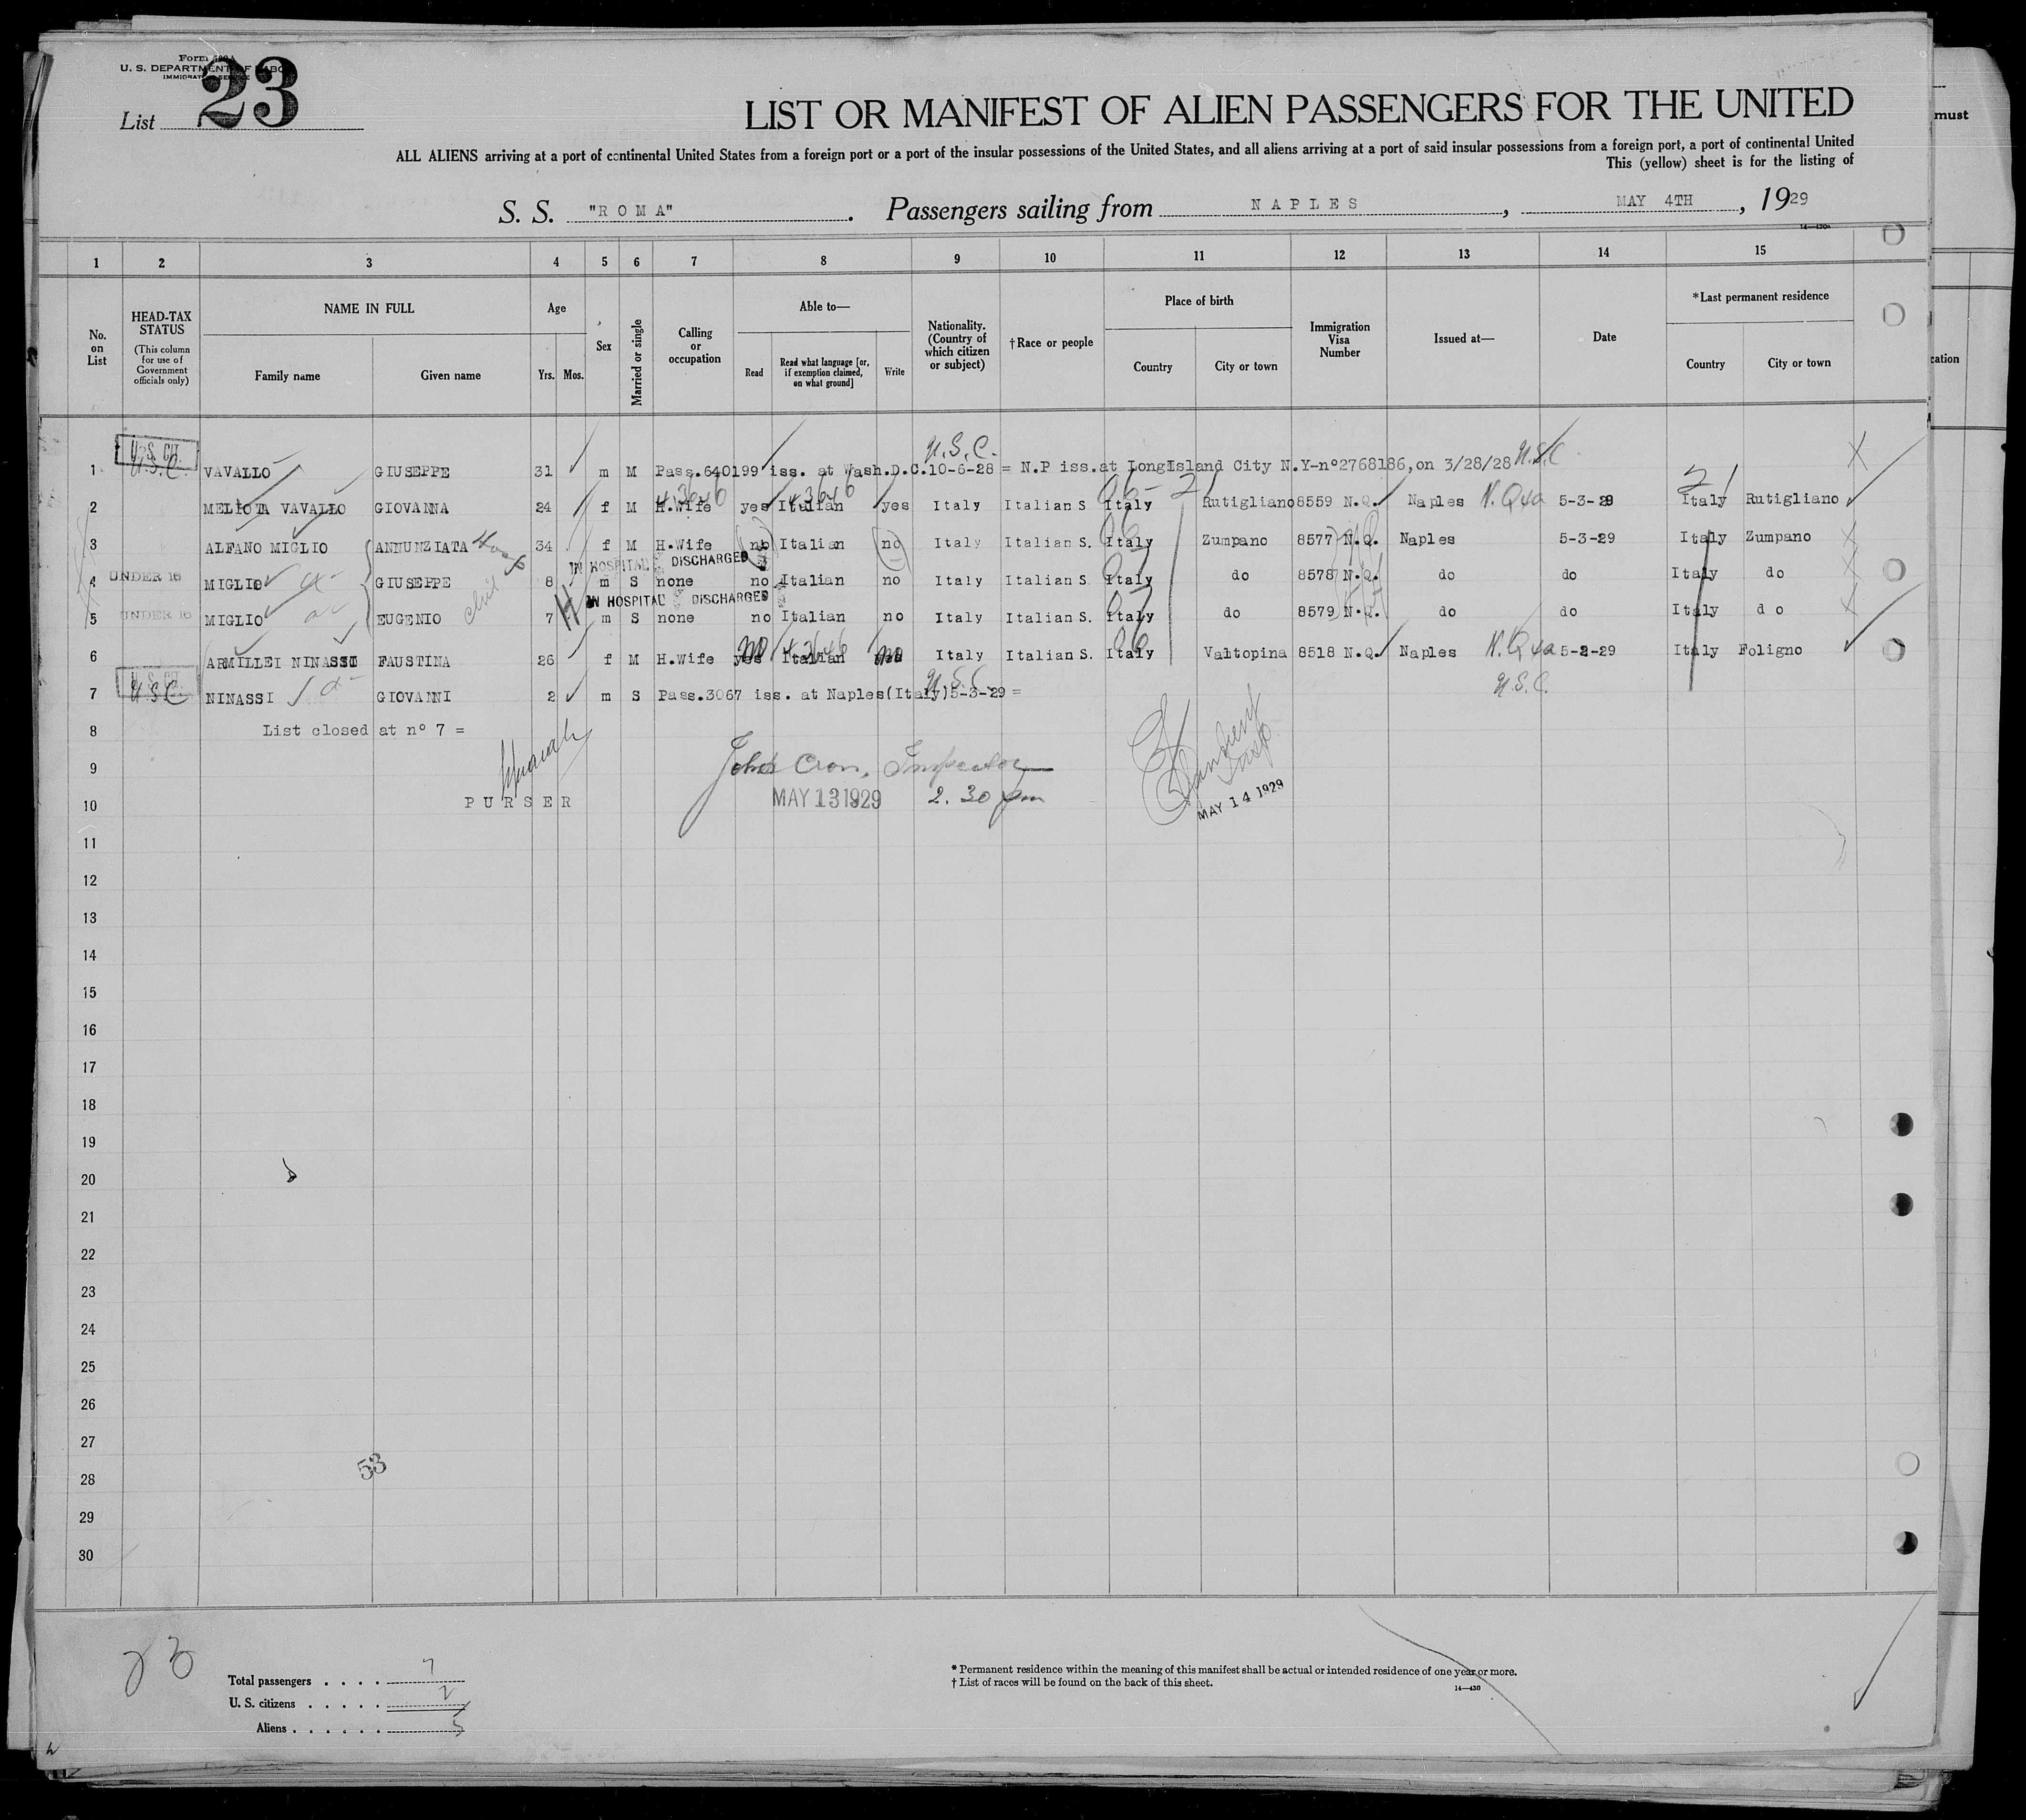 Form 500 A
U. S. DEPARTMENT OF LABOR
IMMIGRATION SERVICE
List 23
LIST OR MANIFEST OF ALIEN PASSENGERS FOR THE UNITED
must
ALL ALIENS arriving at a port of continental United States from a foreign port or a port of the insular possessions of the United States, and all aliens arriving at a port of said insular possessions from a foreign port, a port of continental United
This (yellow) sheet is for the listing of
S. S. "ROMA". Passengers sailing from NAPLES, MAY 4TH, 1929
1 2 3 4 5 6 7 8 9 10 11 12 13 14 15
No. on List
HEAD-TAX STATUS (This column for use of Government officials only)
NAME IN FULL
Family name
Given name
Age
Yrs.
Mos.
Sex
Married or single
Calling or occupation
Able to—
Read
Read what language [or, if exemption claimed, on what ground]
Write
Nationality. (Country of which citizen or subject)
†Race or people
Place of birth
Country
City or town
Immigration Visa Number
Issued at—
Date
*Last permanent residence
Country
City or town
U.S. CIT.
U.S.C.
1 U.S.C. VAVALLO GIUSEPPE 31 m M Pass.640199 iss. at Wash.D.C.10-6-28 = N.P iss.at LongIsland City N.Y-nº2768186,on 3/28/28 U.S.C
2 MELIOTA VAVALLO GIOVANNA 24 f M H.Wife yes Italian yes Italy Italian S Italy Rutigliano 8559 N.Q. Naples 5-3-29 Italy Rutigliano
3 ALFANO MIGLIO ANNUNZIATA 34 f M H.Wife no Italian no Italy Italian S. Italy Zumpano 8577 N.Q. Naples 5-3-29 Italy Zumpano
IN HOSPITAL DISCHARGED
4 UNDER 16 MIGLIO GIUSEPPE 8 m S none no Italian no Italy Italian S. Italy do 8578 N.Q. do do Italy do
IN HOSPITAL DISCHARGED
5 UNDER 16 MIGLIO EUGENIO 7 m S none no Italian no Italy Italian S. Italy do 8579 N.Q. do do Italy do
6 ARMILLEI NINASSI FAUSTINA 26 f M H.Wife yes no Italian no Italy Italian S. Italy Valtopina 8518 N.Q. Naples 5-2-29 Italy Foligno
U.S. CIT.
U.S.C.
7 U.S.C NINASSI GIOVANNI 2 m S Pass.3067 iss. at Naples(Italy)5-3-29 = U.S.C.
8 List closed at nº 7 =
9 John Inspector
10 PURSER MAY 13 1929 2.30 pm MAY 14 1929
11
12
13
14
15
16
17
18
19
20
21
22
23
24
25
26
27
28 53
29
30
23
Total passengers . . . . 7
U. S. citizens . . . . . 2
Aliens . . . . . . 5
* Permanent residence within the meaning of this manifest shall be actual or intended residence of one year or more.
† List of races will be found on the back of this sheet.
14—430